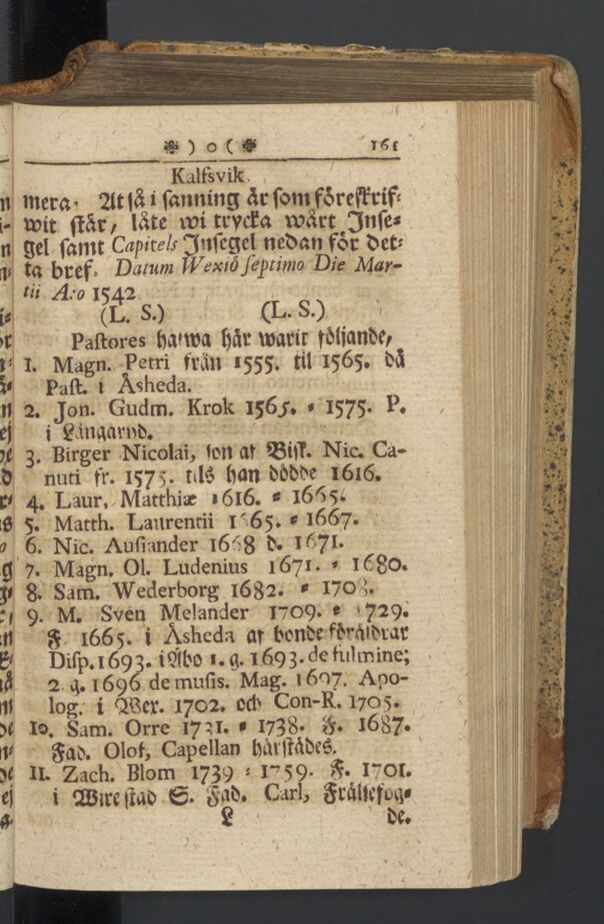 ❉ ) o ( ❉ 161
Kalfsvik.
mera. At så i sanning är som föreskrif=
wit står, låte wi trycka wårt Inse=
gel samt Capitels Insegel nedan för det=
ta bref. Datum Wexiö septimo Die Mar-
tii A:o 1542
(L. S.) (L. S.)
Pastores hafwa här warit följande,
1. Magn. Petri från 1555. til 1565. då
Past. i Åsheda.
2. Jon. Gudm. Krok 1565. = 1575. P.
i Långaryd.
3. Birger Nicolai, son af Bisk. Nic. Ca-
nuti fr. 1575. tils han dödde 1616.
4. Laur. Matthiæ 1616. = 1665.
5. Matth. Laurentii 1665. = 1667.
6. Nic. Ausiander 1668 d. 1671.
7. Magn. Ol. Ludenius 1671. = 1680.
8. Sam. Wederborg 1682. = 1708.
9. M. Sven Melander 1709. = 1729.
F. 1665. i Åsheda af bonde föräldrar
Disp. 1693. i Åbo 1. g. 1693. de fulmine;
2. g. 1696 de musis. Mag. 1697. Apo-
log. i Wex. 1702. och Con-R. 1705.
10. Sam. Orre 1731. = 1738. F. 1687.
Fad. Olof, Capellan härstädes.
11. Zach. Blom 1739 = 1759. F. 1701.
i Wirestad S. Fad. Carl, Frälsefog=
L de.